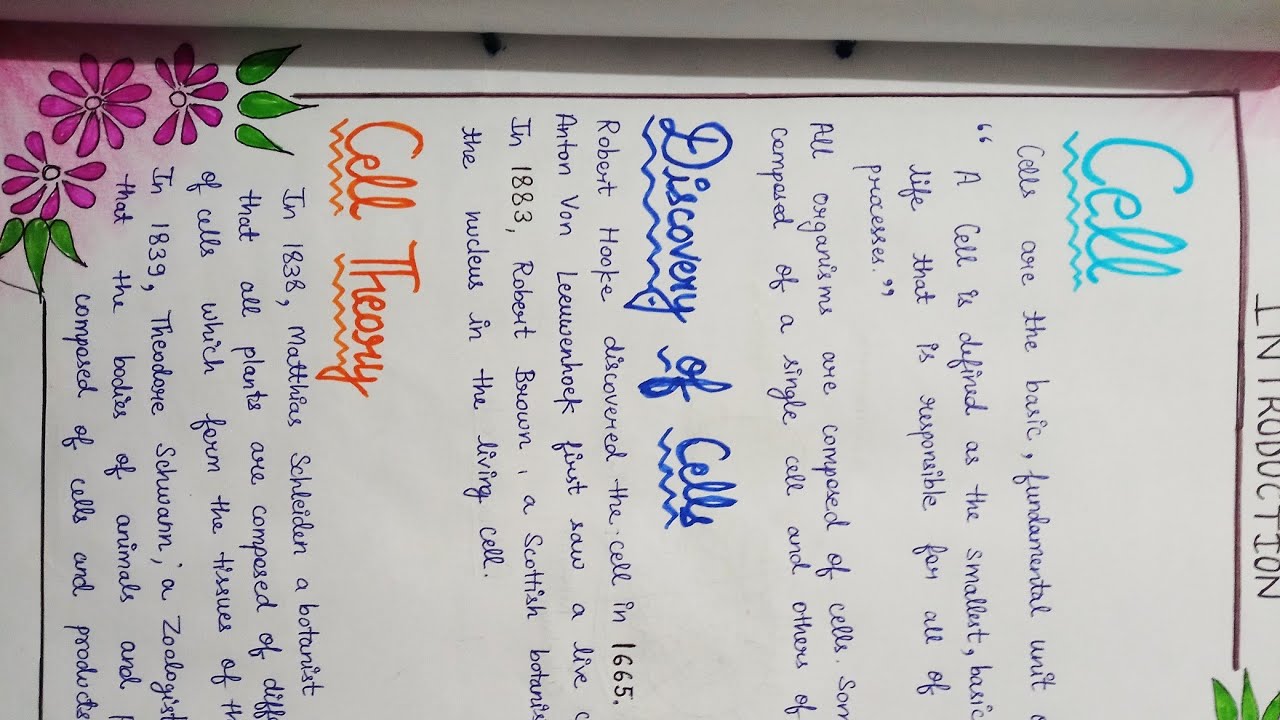 INTRODUCTION
Cell
Cells are the basic, fundamental unit
“ A Cell is defined as the smallest, basic
life that is responsible for all of
processes.”
All organisms are composed of cells. Som
composed of a single cell and others of
Discovery of Cells
Robert Hooke discovered the cell in 1665.
Anton Von Leeuwenhoek first saw a live c
In 1883, Robert Brown, a Scottish botanis
the nucleus in the living cell.
Cell Theory
In 1838, Matthias Schleiden a botanist
that all plants are composed of diff
of cells which form the tissues of th
In 1839, Theodore Schwann, a Zoologist
that the bodies of animals and
composed of cells and products